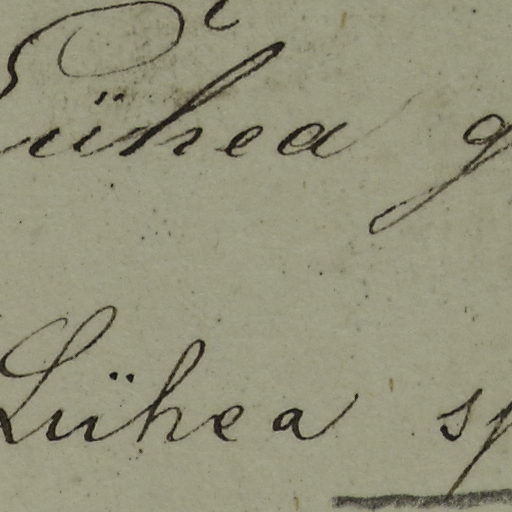 Lühea g
Lühea sp